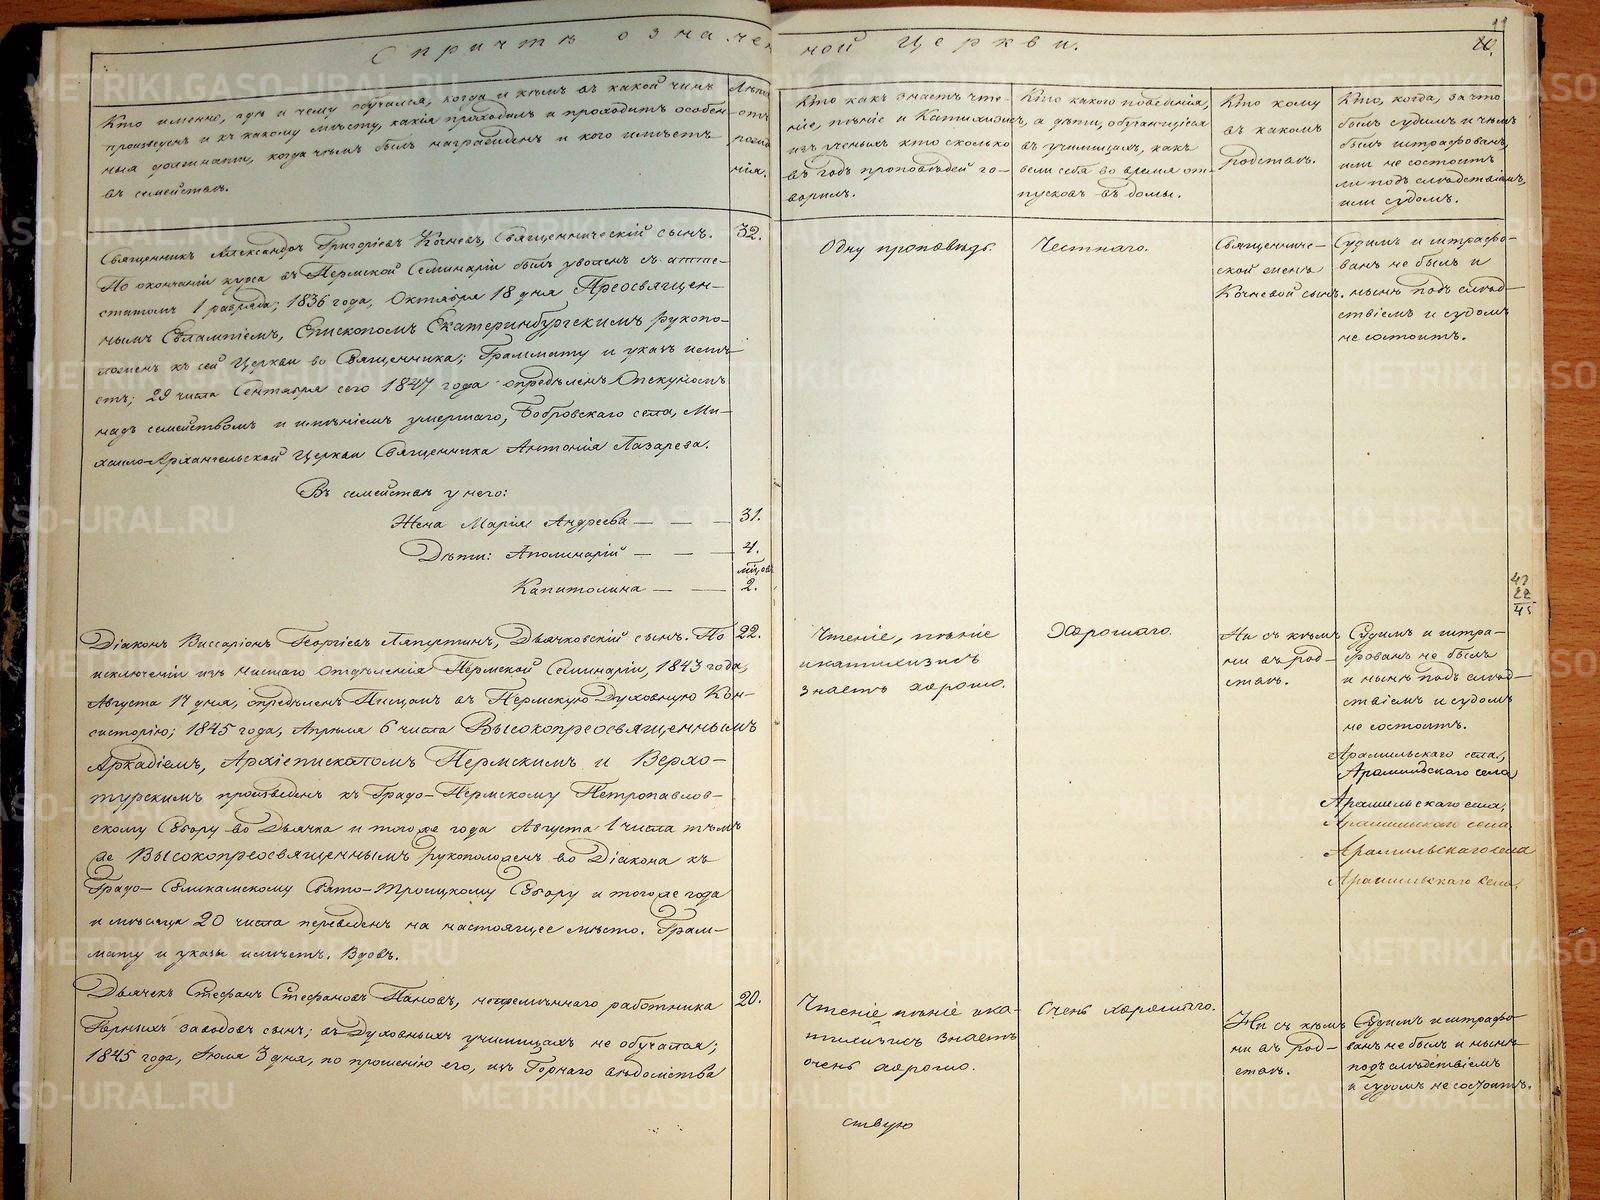 О причтѣ означен-
ной Церкви.
11
20.
Кто именно, гдѣ и чему обучался, когда и кѣмъ въ какой чинъ
произведенъ и къ какому мѣсту, какія проходилъ и проходитъ особен-
ныя должности, когда чѣмъ былъ награжденъ и кого имѣетъ
въ семействѣ.
Лѣта
отъ
рожде
нія.
Кто какъ знаетъ чте-
ніе, пѣніе и Катихизисъ,
изъ ученыхъ кто сколько
въ годъ проповѣдей го-
воритъ.
Кто какого поведенія,
а дѣти, обучающіеся
въ училищахъ, какъ
вели себя во время от-
пусковъ въ домы.
Кто кому
въ какомъ
родствѣ.
Кто, когда, за что
былъ судимъ и чѣмъ
былъ штрафованъ,
или не состоитъ
ли подъ слѣдствіемъ,
или судомъ.
Священникъ Александръ Григорьевъ Кочневъ, Священническій сынъ.
По окончаніи курса въ Пермской Семинаріи былъ уволенъ съ атте-
статомъ 1 разряда; 1836 года, Октября 18 дня Преосвящен-
нымъ Евлампіемъ, Епископомъ Екатеринбургскимъ рукопо-
ложенъ къ сей Церкви во Священника; Граммату и указъ имѣ-
етъ; 29 числа Сентября сего 1847 года опредѣленъ Опекуномъ
надъ семействомъ и имѣніемъ умершаго, Бобровскаго села, Ми-
хаило-Архангельской Церкви Священника Антонія Лазарева.
32.
Одну проповѣдь.
Честнаго.
Священниче-
ской женѣ
Кочневой сынъ.
Судимъ и штрафо-
ванъ не былъ и
нынѣ подъ слѣд-
ствіемъ и судомъ
не состоитъ.
Въ семействѣ у него:
Жена Марія Андреева — — — 31.
Дѣти: Аполинарій — — — 4.
мѣсяцовъ
Капитолина — — 2.
41
22
45
Діаконъ Виссаріонъ Георгіевъ Ляпустинъ, Дьячковскій сынъ. По
исключеніи изъ низшаго отдѣленія Пермской Семинаріи, 1843 года,
Августа 17 дня, опредѣленъ Писцомъ въ Пермскую Духовную Кон-
систорію; 1845 года, Апрѣля 6 числа Высокопреосвященнымъ
Аркадіемъ, Архіепископомъ Пермскимъ и Верхо-
турскимъ произведенъ къ Градо-Пермскому Петропавлов-
скому Собору во Дьячка и того же года Августа 1 числа тѣмъ
же Высокопреосвященнымъ рукоположенъ во Діакона къ
Градо-Соликамскому Свято-Троицкому Собору и того же года
и мѣсяца 20 числа переведенъ на настоящее мѣсто. Грам-
мату и указы имѣетъ. Вдовъ.
22.
Чтеніе, пѣніе
и катихизисъ
знаетъ хорошо.
Хорошаго.
Ни съ кѣмъ
ни въ род-
ствѣ.
Судимъ и штра-
фованъ не былъ
и нынѣ подъ слѣд-
ствіемъ и судомъ
не состоитъ.
Арамильскаго села,
Арамильскаго села
Арамильскаго села,
Арамильскаго села
Арамильскаго села
Арамильскаго села,
Дьячекъ Стефанъ Стефановъ Пановъ, непремѣннаго работника
Горныхъ заводовъ сынъ; въ Духовныхъ училищахъ не обучался;
1845 года, Іюля 3 дня, по прошенію его, изъ Горнаго вѣдомства
20.
Чтеніе пѣніе и ка-
тихизисъ знаетъ
очень хорошо.
Очень хорошаго.
Ни съ кѣмъ
ни въ род-
ствѣ.
Судимъ и штрафо-
ванъ не былъ и нынѣ
подъ слѣдствіемъ
и судомъ не состоитъ.
ствую
METRIKI.GASO-URAL.RU